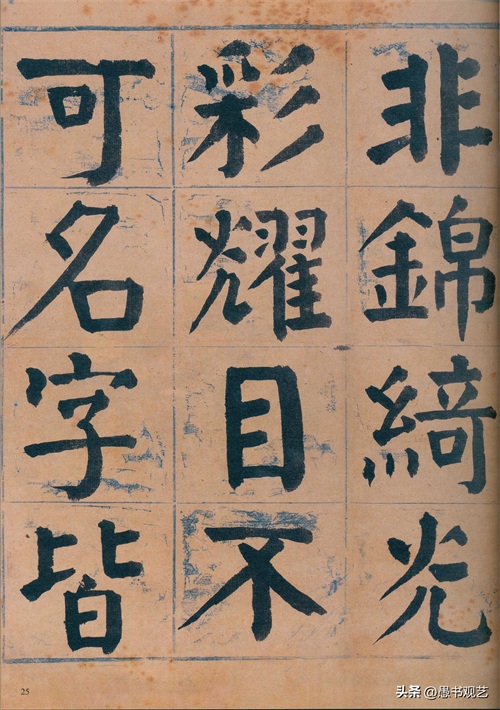 非錦綺光
彩耀目不
可名字皆
25
头条@愚书观艺